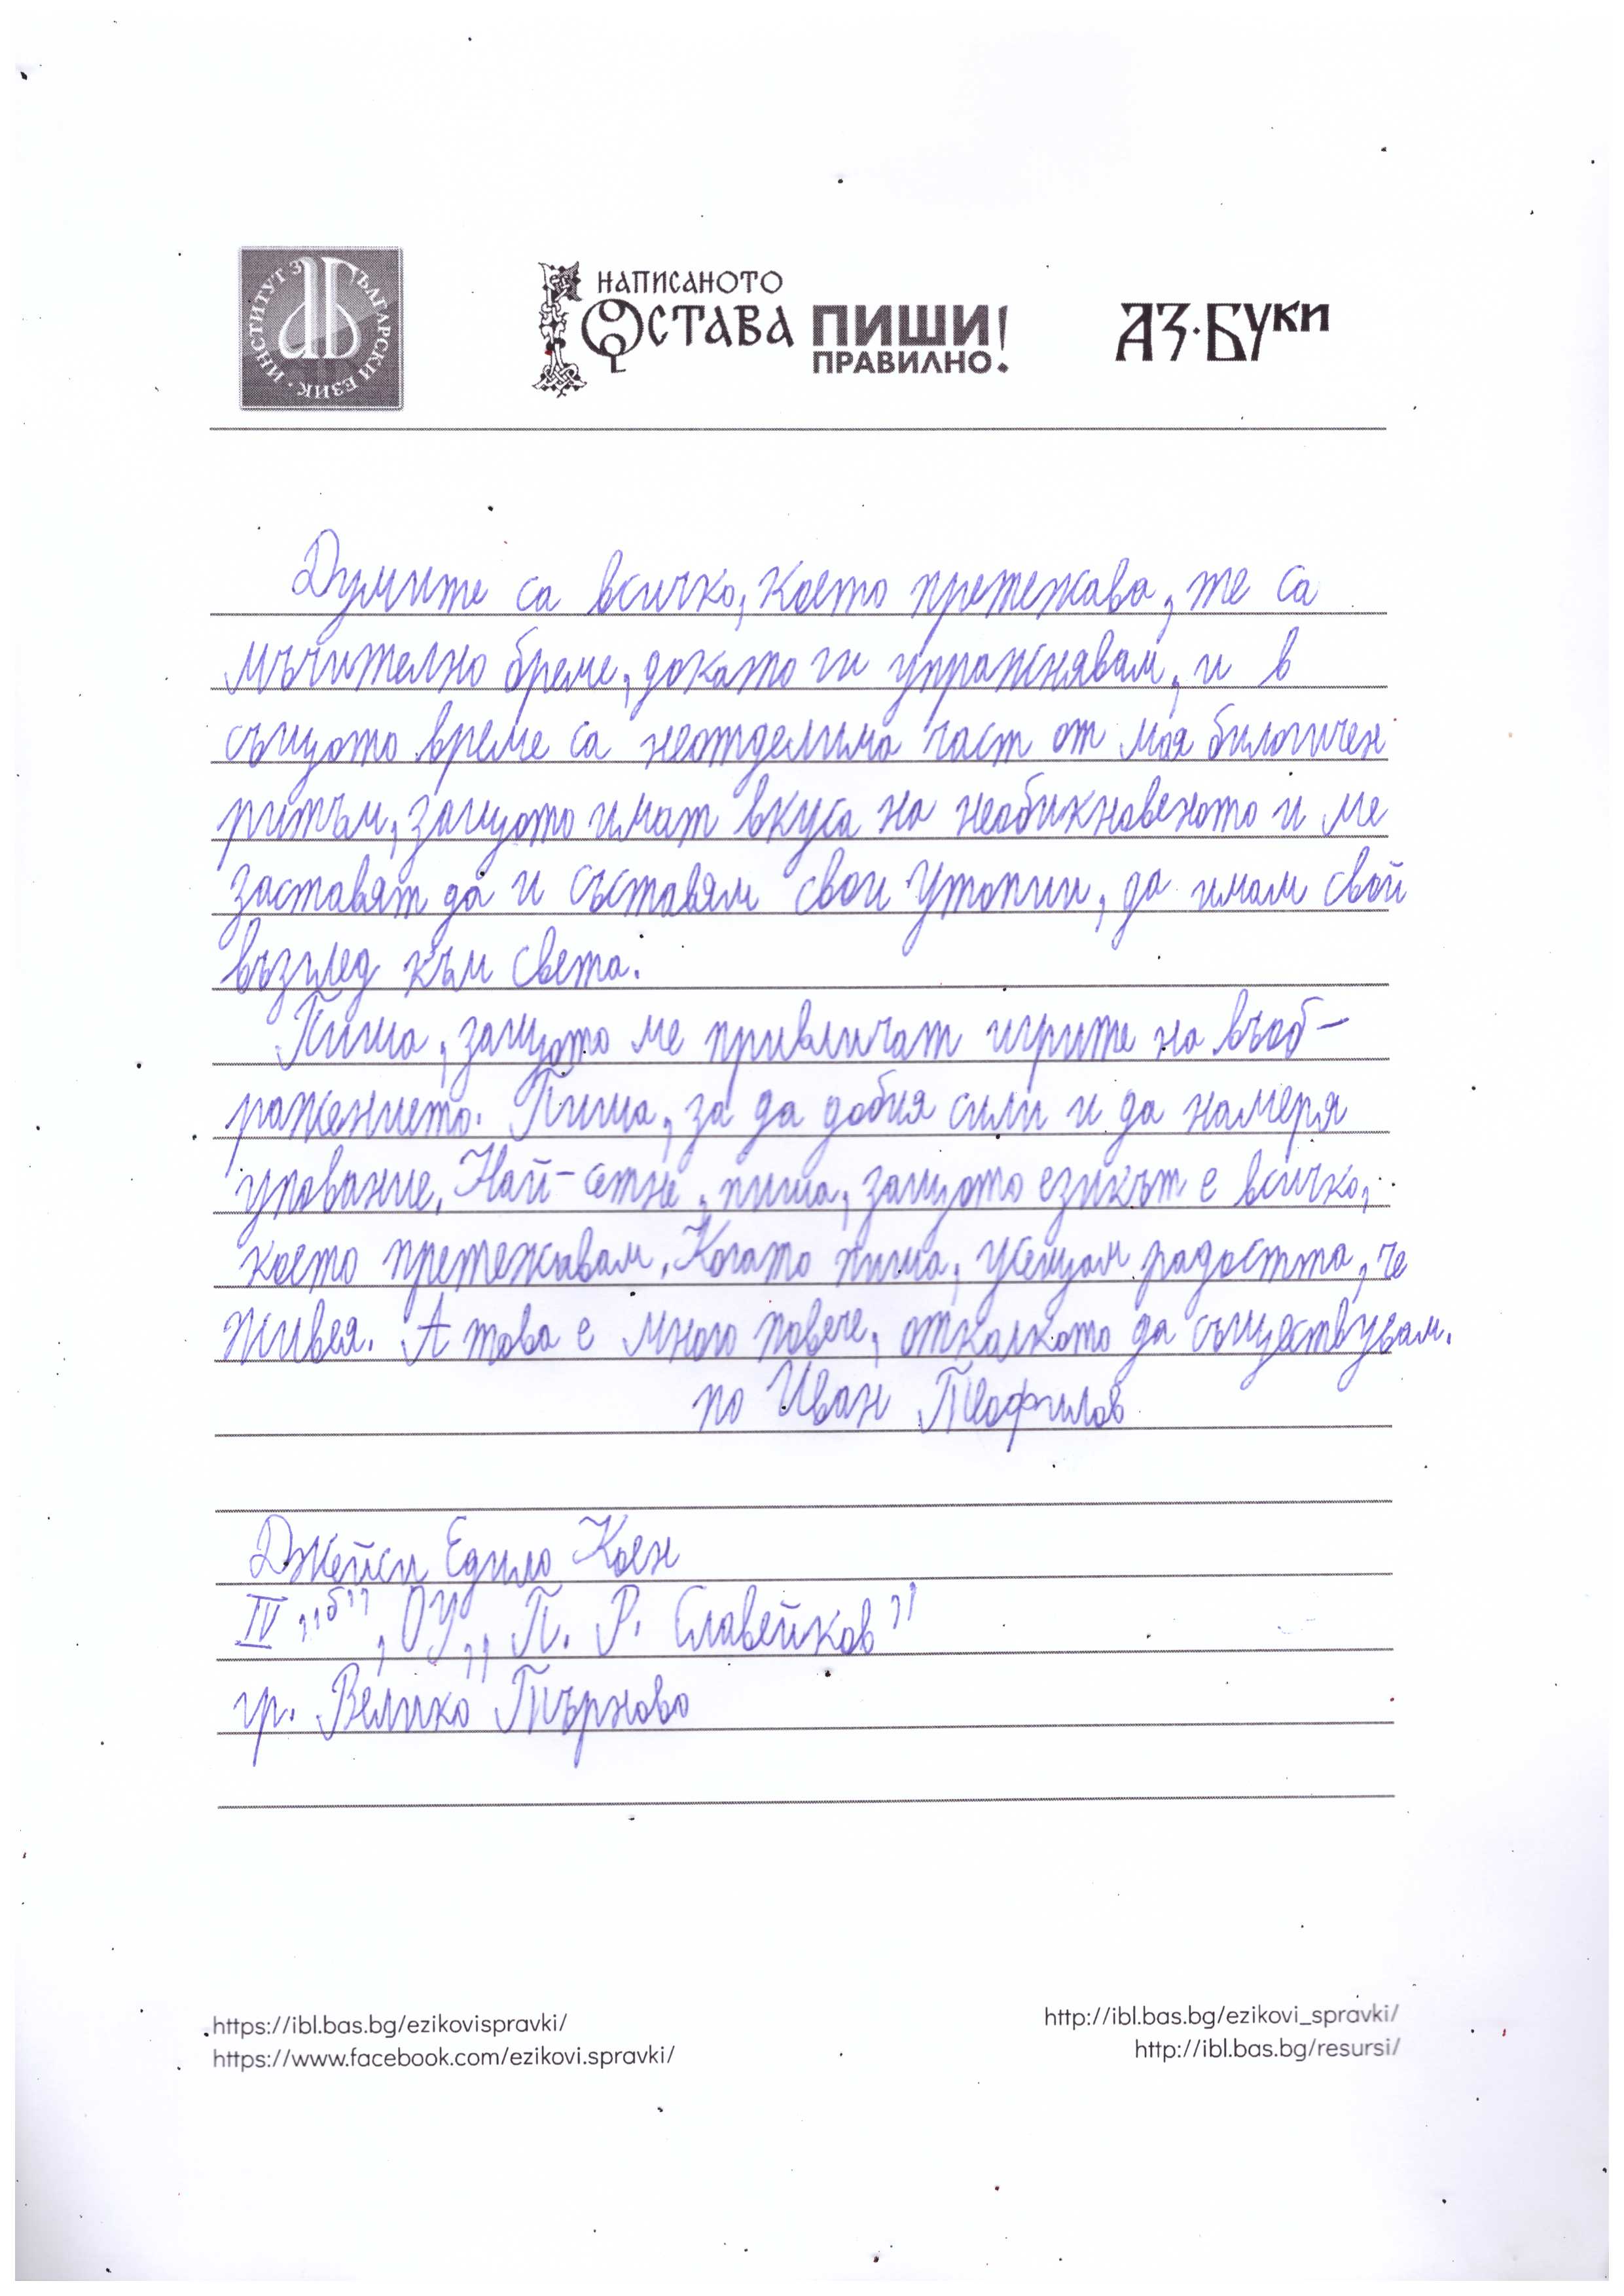 ИНСТИТУТ ЗА БЪЛГАРСКИ ЕЗИК
НАПИСАНОТО
ОСТАВА ПИШИ!
ПРАВИЛНО.
АЗ·БУКИ
Думите са всичко, което претежава, те са
мъчително бреме, докато ги упражнявам, и в
същото време са неотделима част от моя билогичен
ритъм, защото имат вкуса на необикновеното и ме
заставят да и съставям свои утопии, да имам свой
възглед към света.
Пиша, защото ме привличат игрите на въоб-
ражението. Пиша, за да добия сили и да намеря
упование. Най-сетне, пиша, защото езикът е всичко,
което претежавам. Когато пиша, усещам радостта, че
живея. А това е много повече, отколкото да съществувам.
по Иван Теофилов
Джейси Едило Коен
IV „б", ОУ „П. Р. Славейков"
гр. Велико Търново
https://ibl.bas.bg/ezikovispravki/
https://www.facebook.com/ezikovi.spravki/
http://ibl.bas.bg/ezikovi_spravki/
http://ibl.bas.bg/resursi/